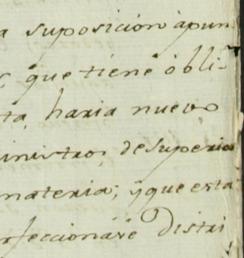 a suposicion àpun
que tiene obli
ta, haria nuevo
inistro, de superio
materia; y que esta
rfeccionàre Distri